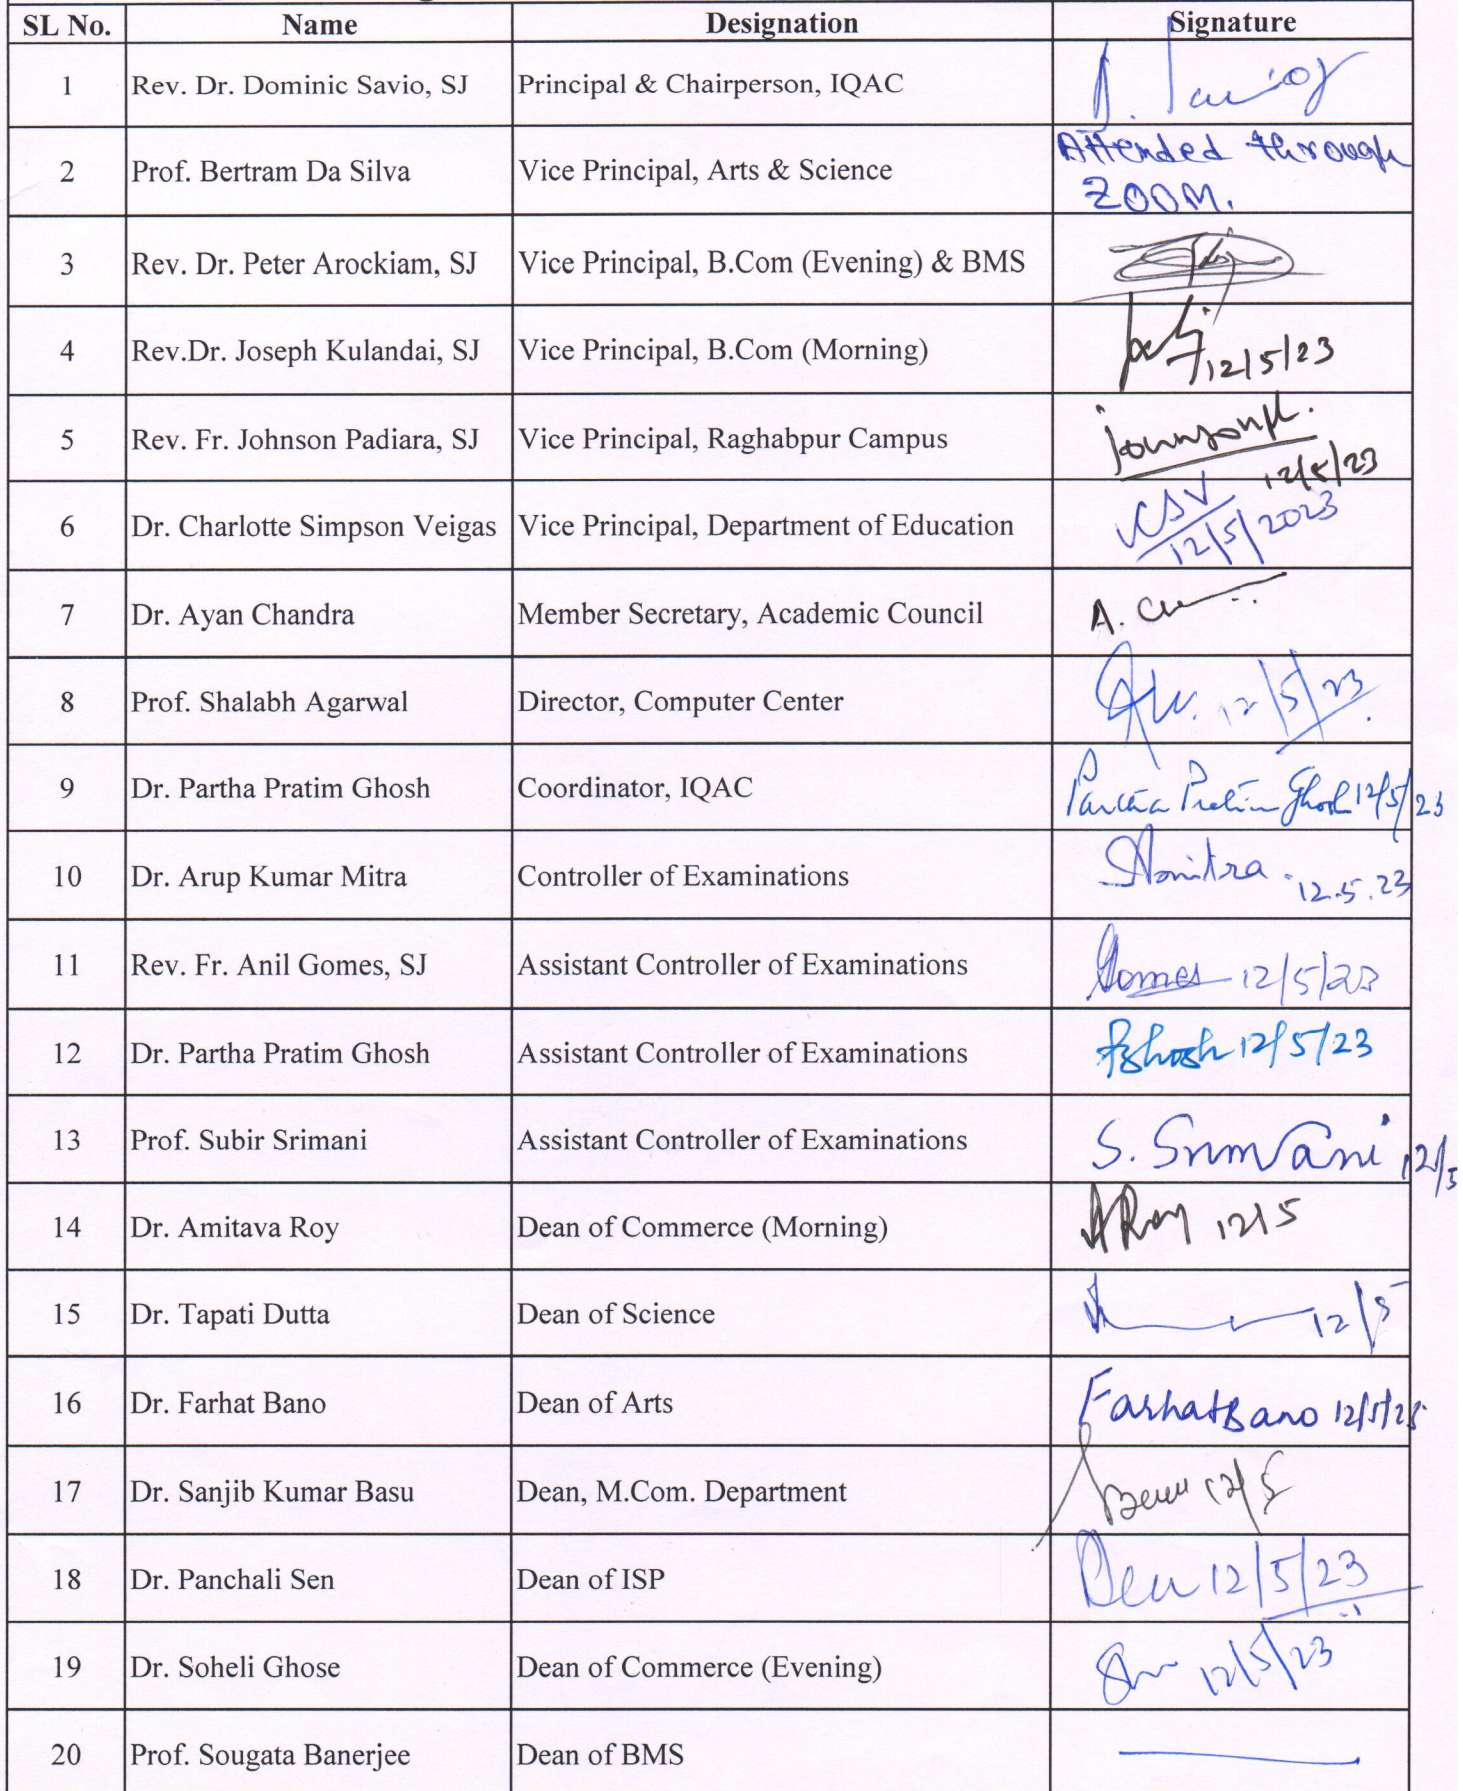 SL No. Name Designation Signature
1 Rev. Dr. Dominic Savio, SJ Principal & Chairperson, IQAC
2 Prof. Bertram Da Silva Vice Principal, Arts & Science Attended through
ZOOM.
3 Rev. Dr. Peter Arockiam, SJ Vice Principal, B.Com (Evening) & BMS
4 Rev.Dr. Joseph Kulandai, SJ Vice Principal, B.Com (Morning) 12/5/23
5 Rev. Fr. Johnson Padiara, SJ Vice Principal, Raghabpur Campus
12/5/23
6 Dr. Charlotte Simpson Veigas Vice Principal, Department of Education CSV
12/5/2023
7 Dr. Ayan Chandra Member Secretary, Academic Council A.
8 Prof. Shalabh Agarwal Director, Computer Center 12/5/23
9 Dr. Partha Pratim Ghosh Coordinator, IQAC Partha Pratim Ghosh 12/5/23
10 Dr. Arup Kumar Mitra Controller of Examinations 12.5.23
11 Rev. Fr. Anil Gomes, SJ Assistant Controller of Examinations Gomes 12/5/23
12 Dr. Partha Pratim Ghosh Assistant Controller of Examinations PGhosh 12/5/23
13 Prof. Subir Srimani Assistant Controller of Examinations S. Srimani 12/5
14 Dr. Amitava Roy Dean of Commerce (Morning) ARoy 12/5
15 Dr. Tapati Dutta Dean of Science 12/5
16 Dr. Farhat Bano Dean of Arts Farhat Bano 12/5/23
17 Dr. Sanjib Kumar Basu Dean, M.Com. Department 12/5
18 Dr. Panchali Sen Dean of ISP 12/5/23
19 Dr. Soheli Ghose Dean of Commerce (Evening) 12/5/23
20 Prof. Sougata Banerjee Dean of BMS